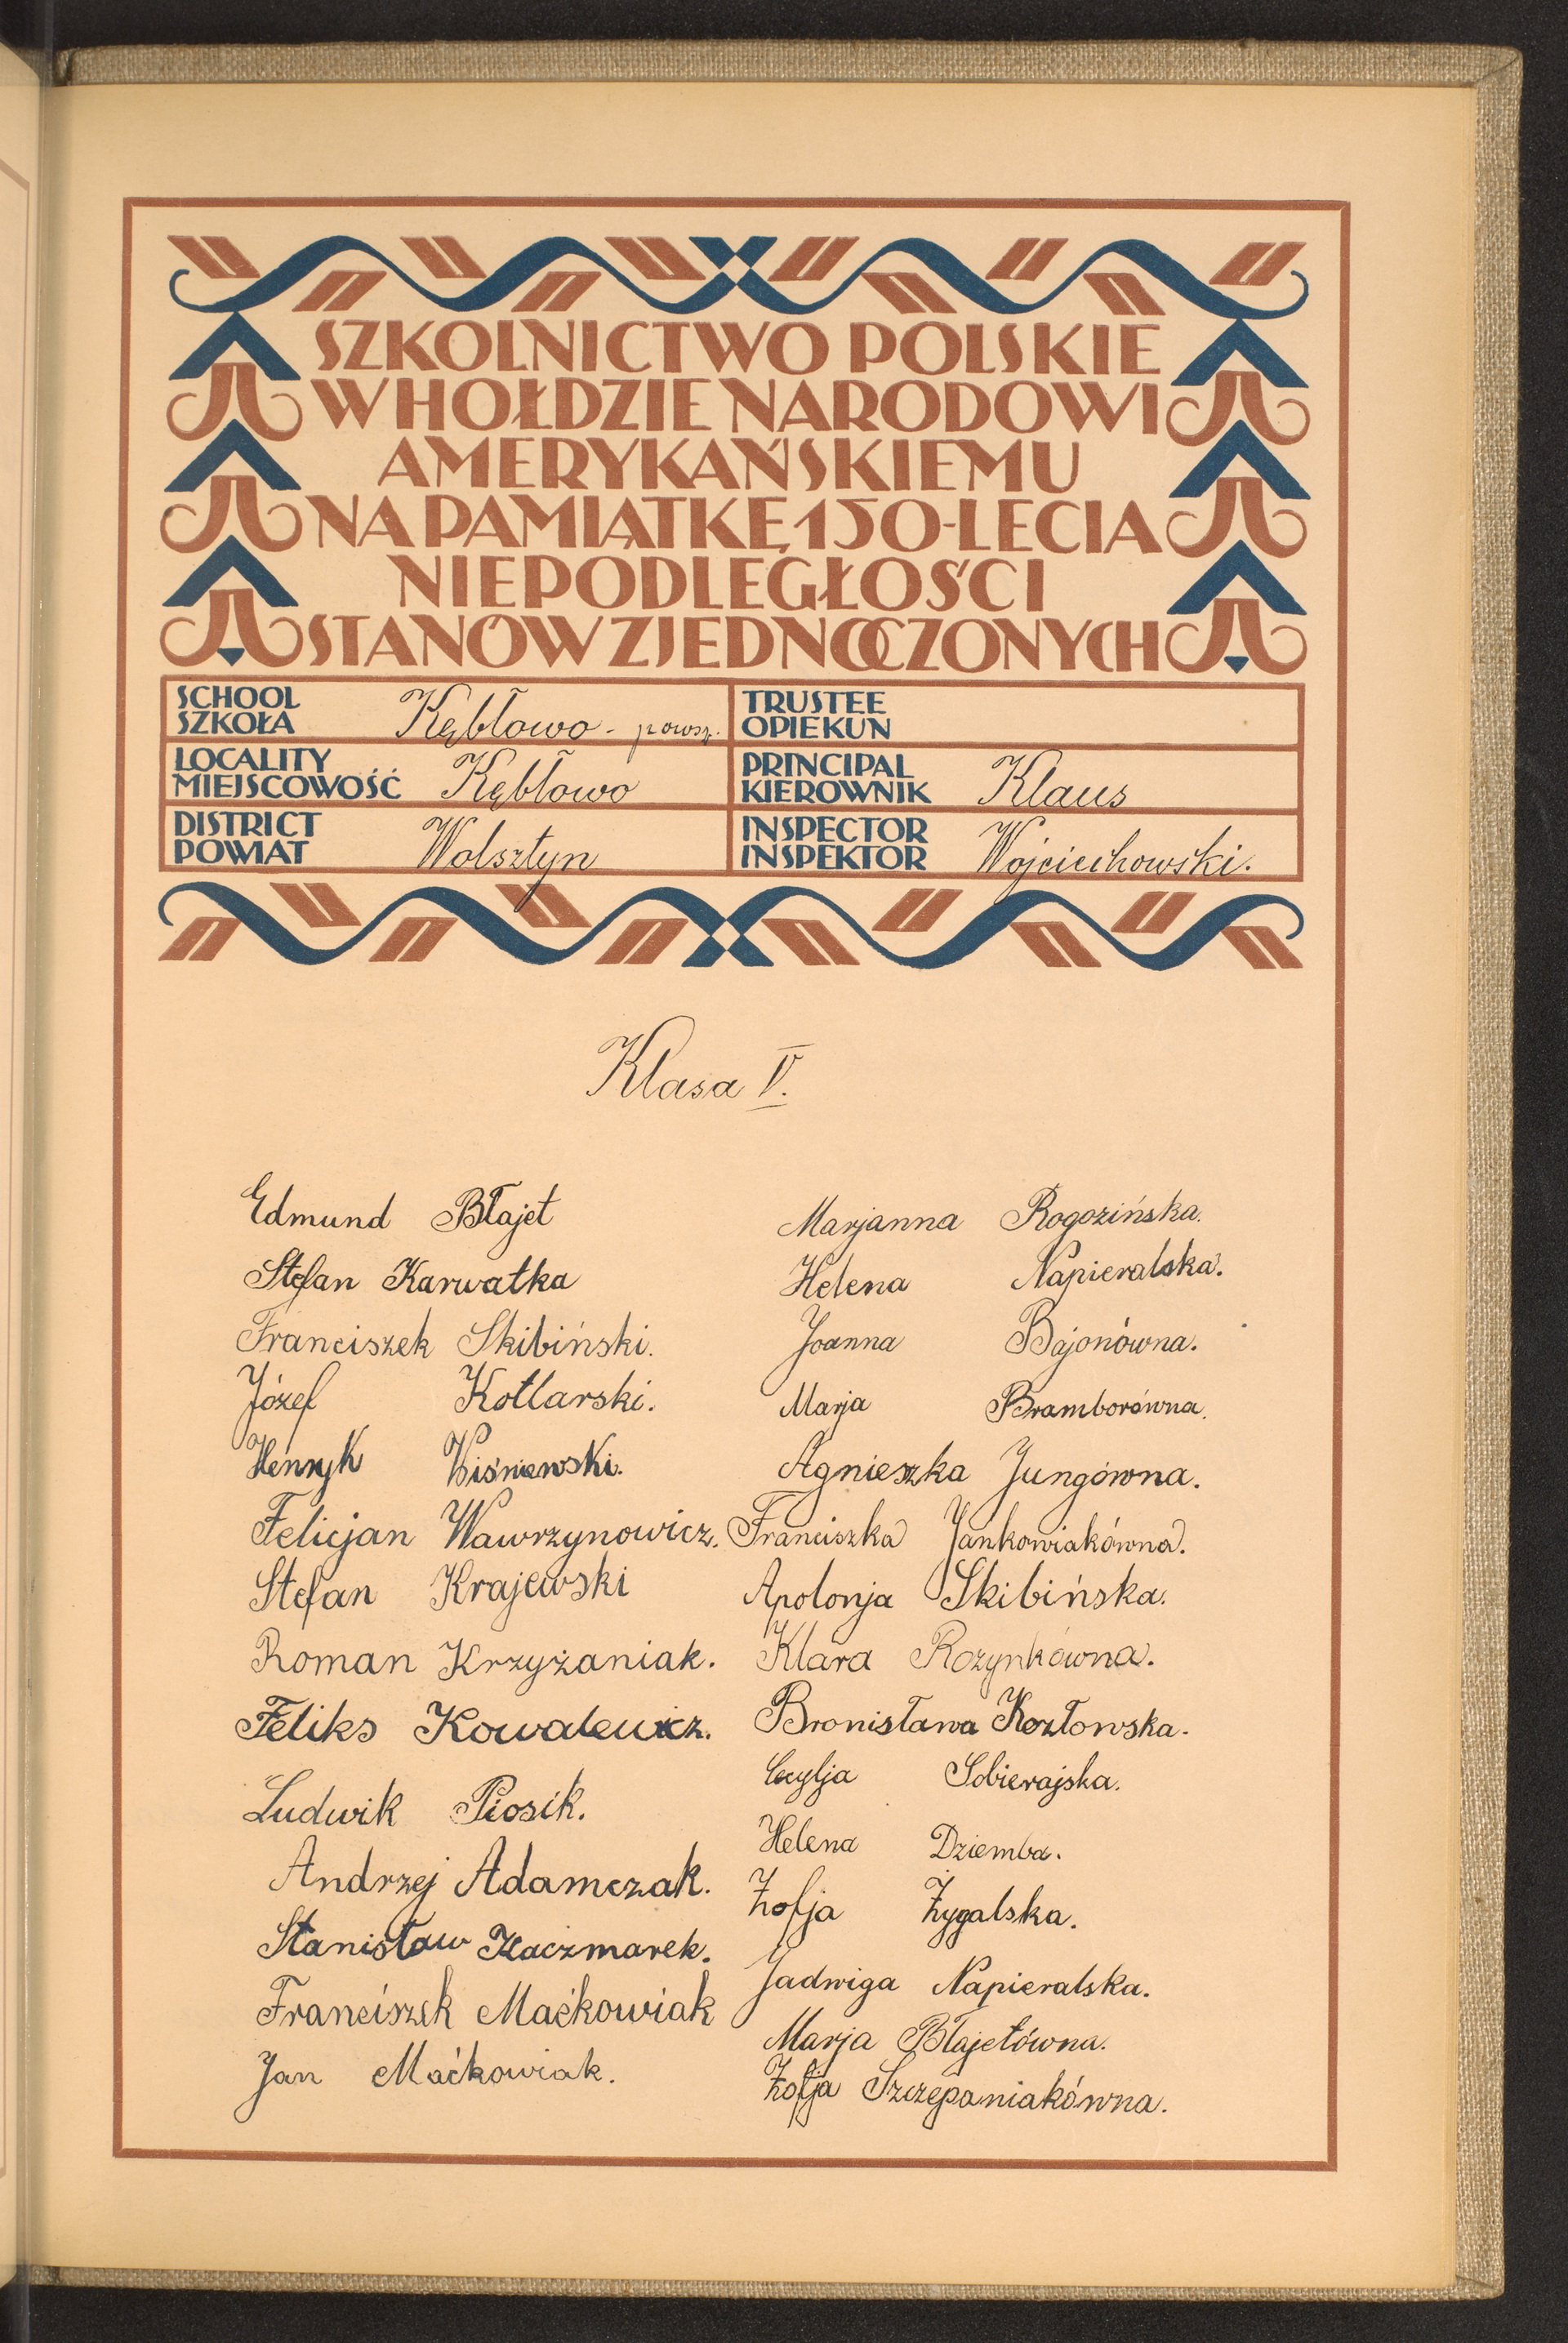 SZKOLNICTWO POLSKIE
W HOŁDZIE NARODOWI
AMERYKAŃSKIEMU
NA PAMIĄTKĘ 150-LECIA
NIEPODLEGŁOŚCI
STANÓW ZJEDNOCZONYCH
SCHOOL
SZKOŁA
Kębłowo - powsz.
TRUSTEE
OPIEKUN
LOCALITY
MIEJSCOWOŚĆ
Kębłowo
PRINCIPAL
KIEROWNIK
Klaus
DISTRICT
POWIAT
Wolsztyn
INSPECTOR
INSPEKTOR
Wojciechowski.
Klasa V.
Edmund Błajet
Stefan Karwatka
Franciszek Skibiński.
Józef Kotlarski.
Henryk Wiśniewski.
Felicjan Wawrzynowicz.
Stefan Krajewski
Roman Krzyżaniak.
Feliks Kowalewicz.
Ludwik Piosik.
Andrzej Adamczak.
Stanisław Kaczmarek.
Franciszek Maćkowiak
Jan Maćkowiak.
Marjanna Rogozińska.
Helena Napieralska.
Joanna Bajonówna.
Marja Bramborówna.
Agnieszka Jungówna.
Franciszka Jankowiakówna.
Apolonja Skibińska.
Klara Rozynkówna.
Bronisława Kozłowska.
Cecylja Sobierajska.
Helena Dziemba.
Zofja Żygalska.
Jadwiga Napieralska.
Marja Błajetówna.
Zofja Szczepaniakówna.